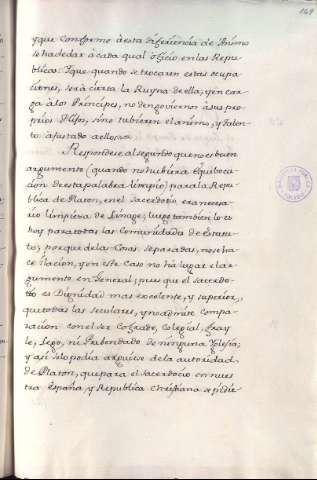 169
y que conforme à esta diferiencia de Animo
se ha de dar à cada qual oficio en las Repu-
blicas. Y que quando se trocaren estas ocupa-
ciones, será cierta la Ruyna de ella; y en car-
ga à los Principes, no den govierno à sus pro-
prios Hijos, sino tubieren el animo, y talen-
to ajustado a ellos.
Respondese al segundo que no es buen
argumento (quando no hubiera Equiboca-
cion de esta palabra Limpio) para la Repu-
blica de Platon, en el Sacerdocio era necesa-
rio limpieza de Linage; luego tambien lo es
hoy para todas las Comunidades de Estatu-
to; porque de las Cosas separadas, no se ha-
ce ilacion, y en este caso no ha lugar el ar-
gumento en General; pues que el sacerdo-
cio es Dignidad mas excelente, y superior,
que todas las seculares, y no admite compa-
racion con el ser Cofrade, Colegial, Fray-
le, Lego, ni Prebendado de ninguna Yglesia;
y asi solo podia arguirse de la autoridad
de Platon, que para el sacerdocio en nues-
tra España, y Republica Christiana se pidie